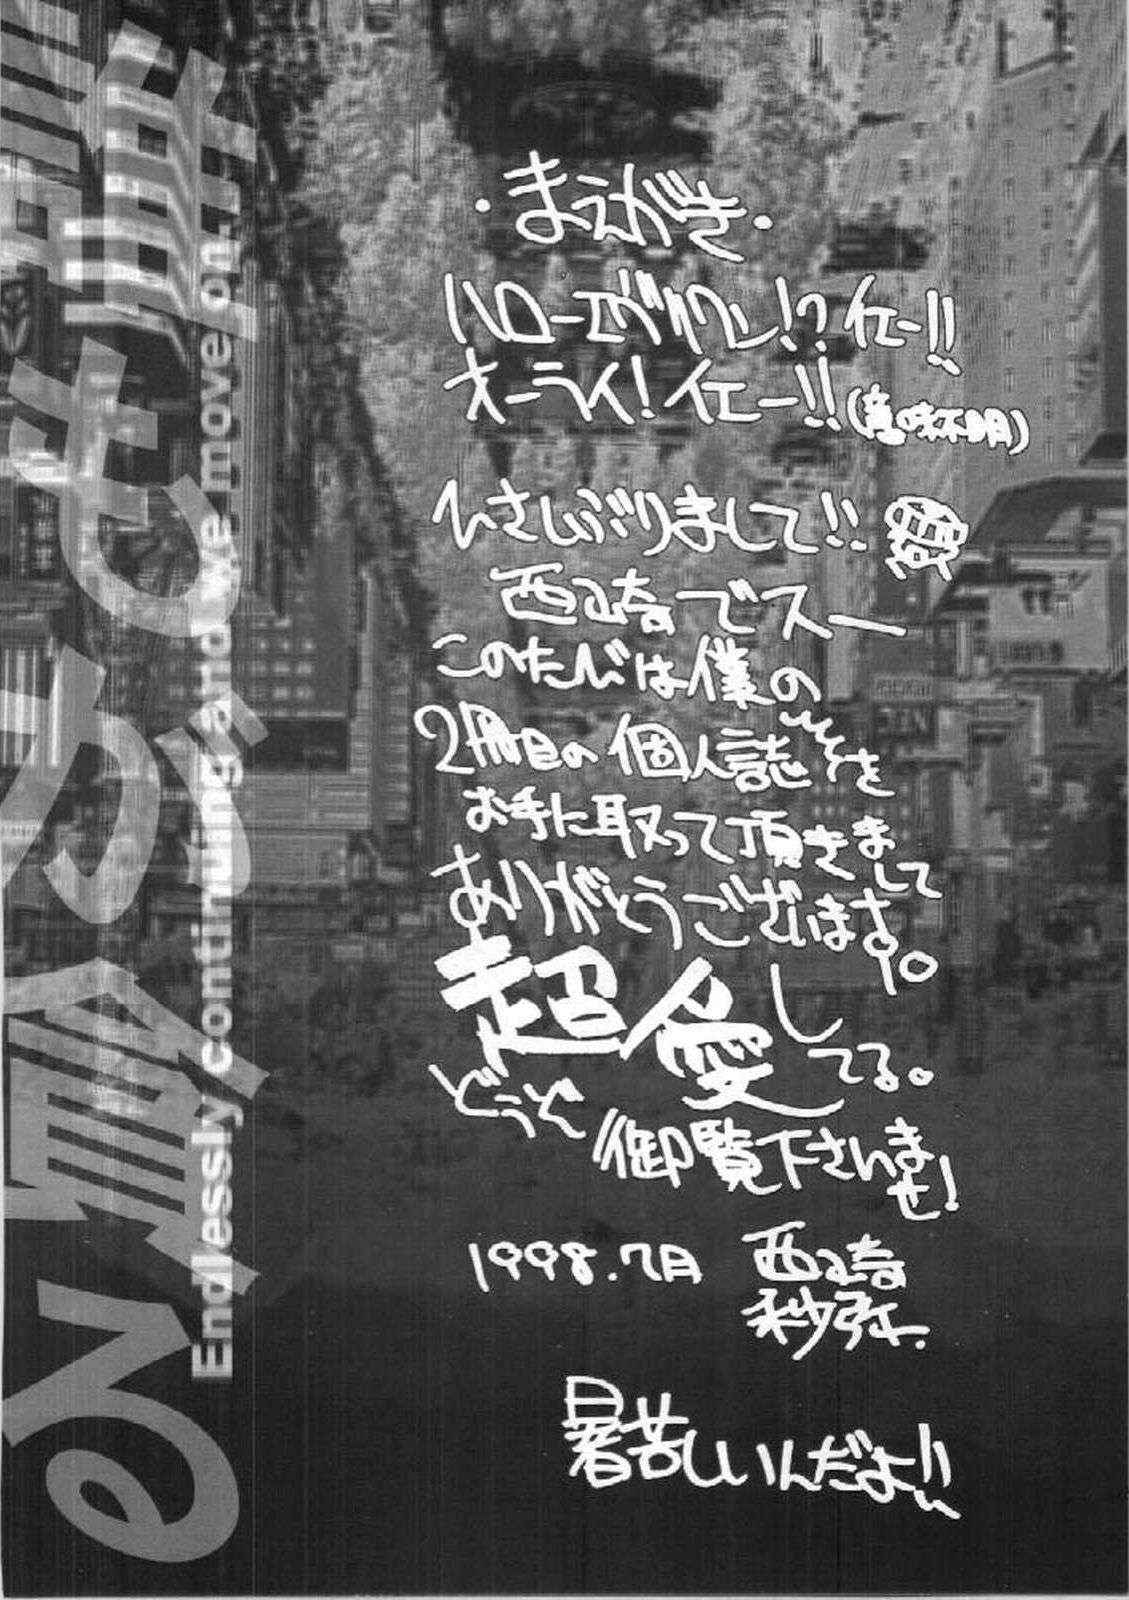 ・まえがき・
ハローエヴリワン!?イエー!!
オーライ!イエー!!(意味不明)
ひさしぶりまして!!
西崎でスー
このたびは僕の
2冊目の個人誌を
お手に取って頂きまして
ありがとうございます。
超愛してる。
どうぞ
御覧下さいませ!
1998.7月 西崎
秒弥.
暑苦しいんだよ!!
Endlessly continuing and we move on.